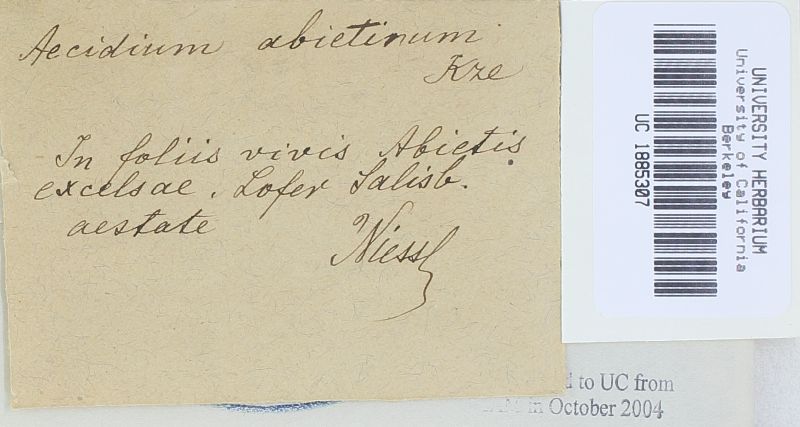 Aecidium abietinum
Kze
In foliis vivis Abietis
excelsae. Lofer Salisb.
aestate
Niessl
UNIVERSITY HERBARIUM
University of California
Berkeley
UC 1885307
to UC from
in October 2004